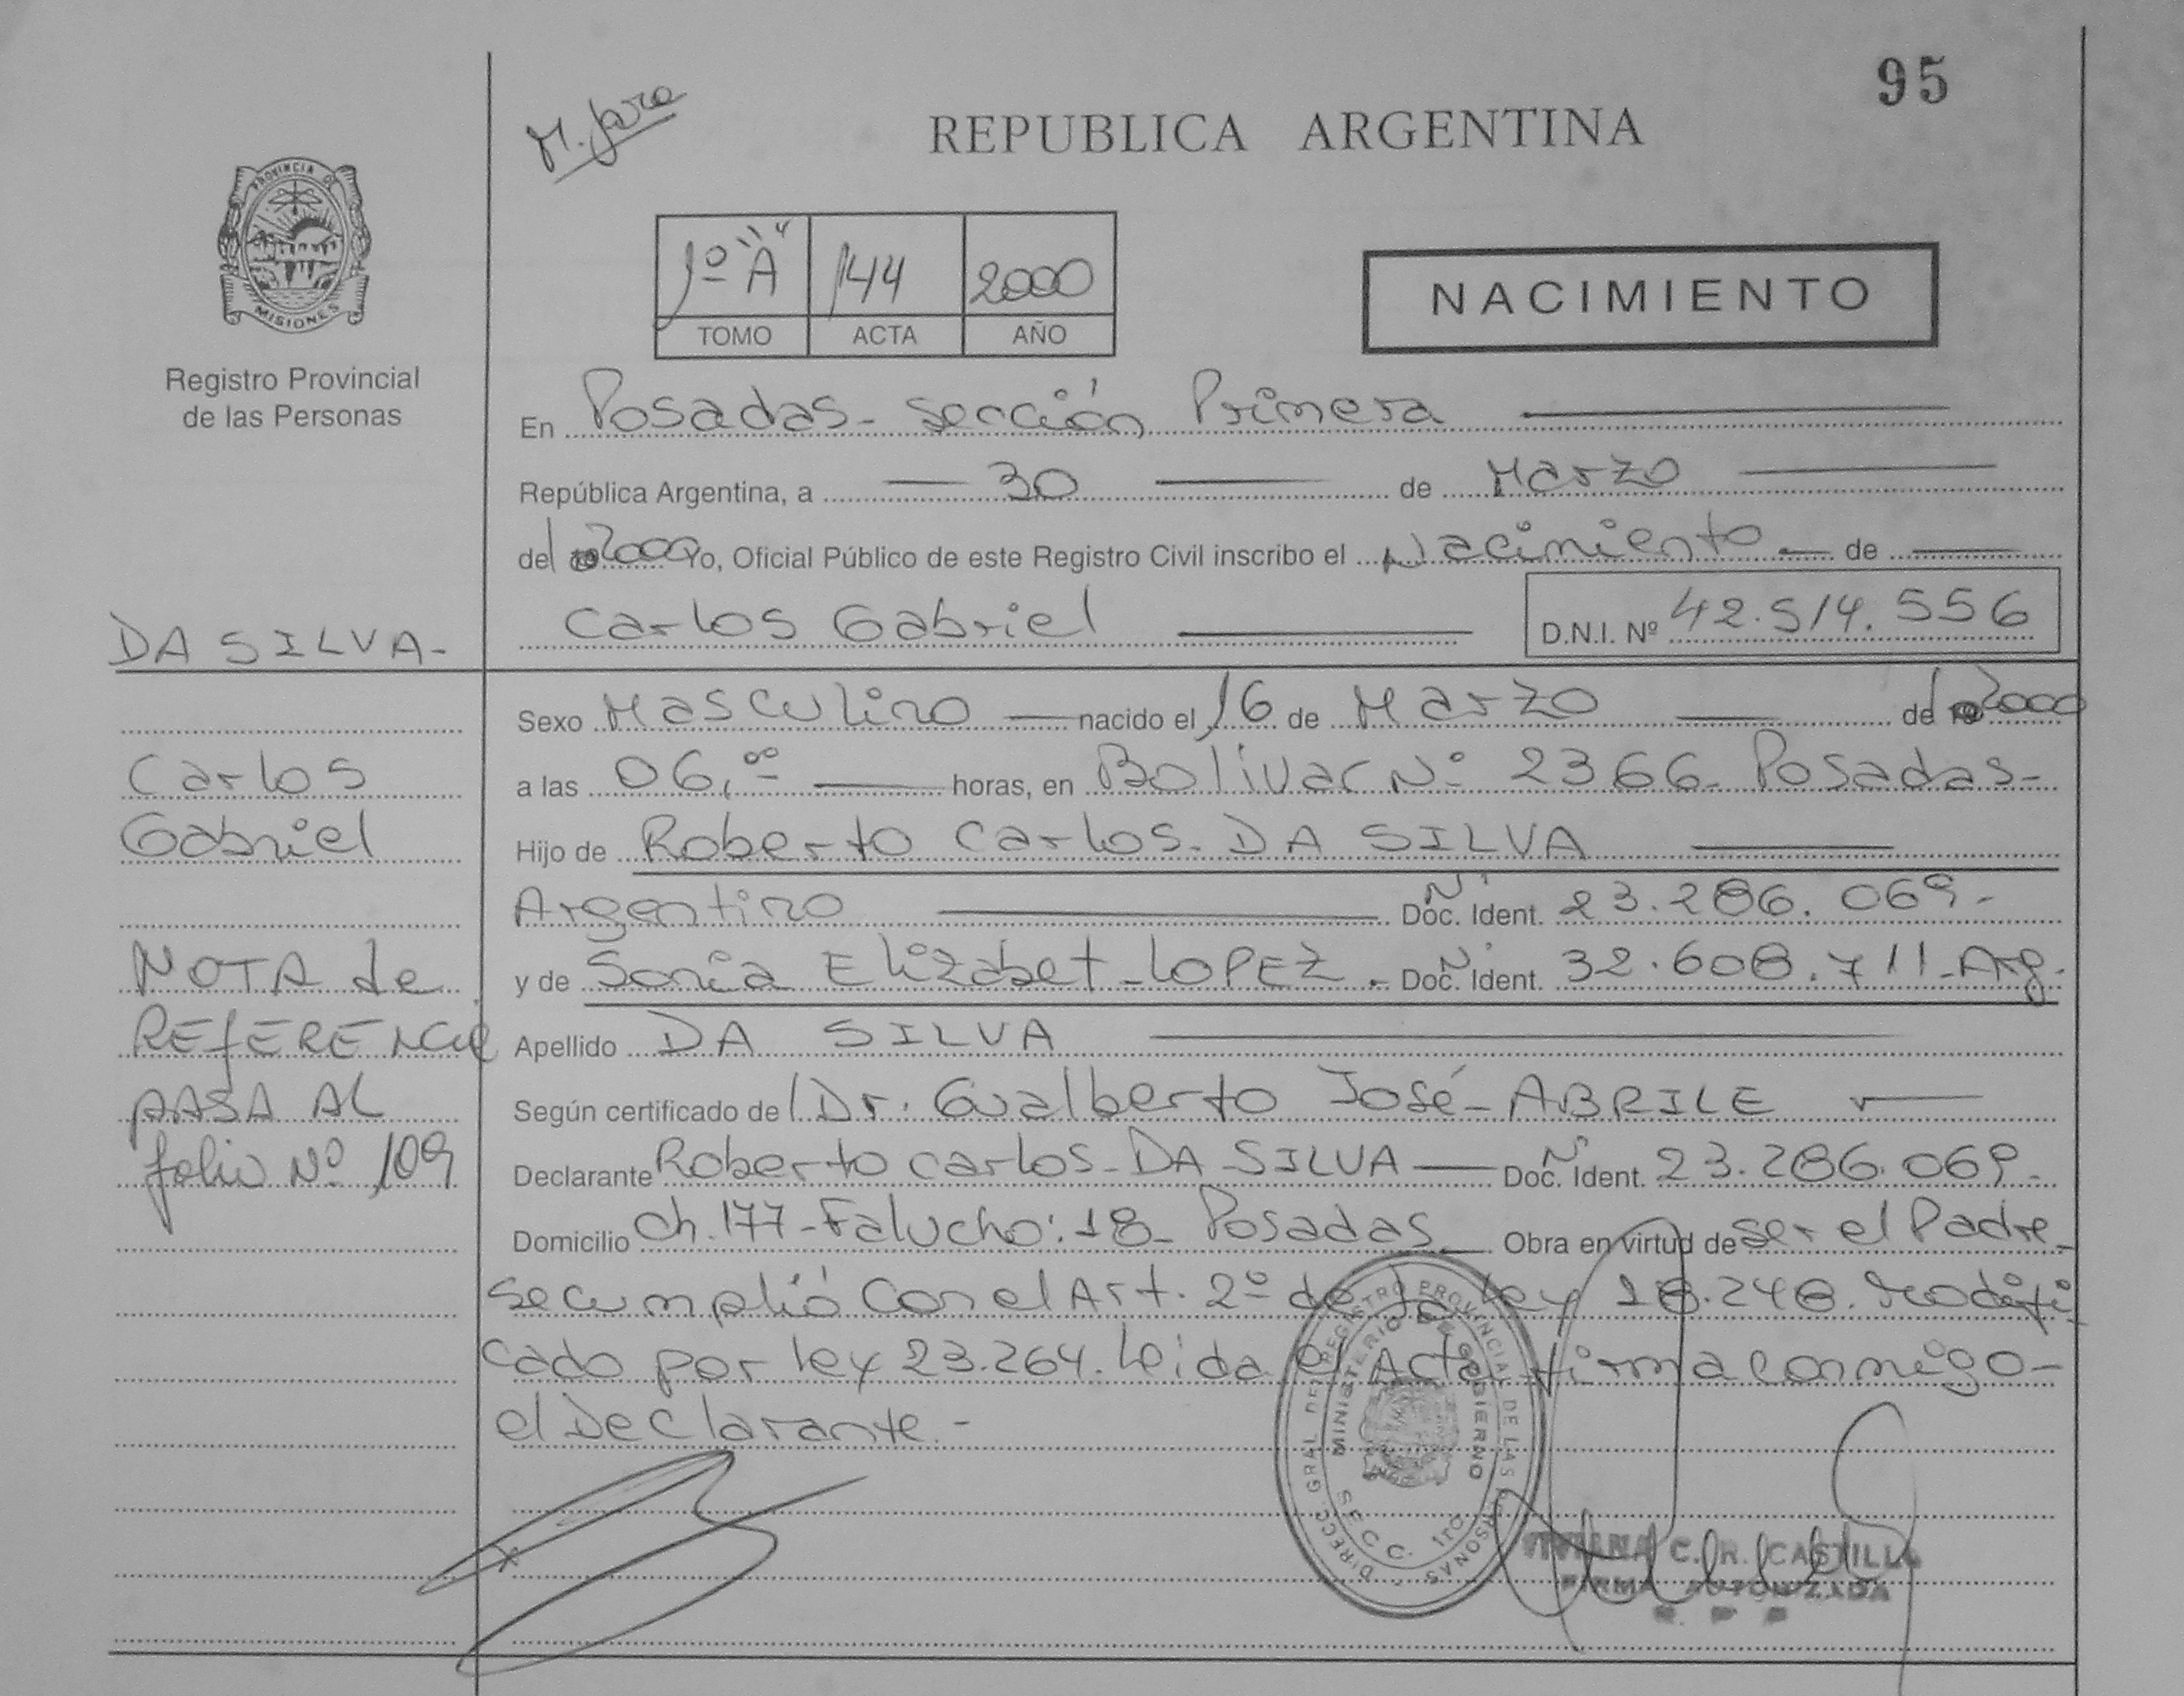 95
M. Jara
REPUBLICA ARGENTINA
PROVINCIA DE
MISIONES
Registro Provincial
de las Personas
1º "A" 144 2000
TOMO ACTA AÑO
NACIMIENTO
En Posadas - sección Primera
República Argentina, a 30 de Marzo
del 2000 Yo, Oficial Público de este Registro Civil inscribo el Nacimiento de
Carlos Gabriel D.N.I. Nº 42.514.556
DA SILVA-
Carlos
Gabriel
NOTA de
REFERENCIA
PASA AL
folio Nº 109
Sexo Masculino nacido el 16 de Marzo del 2000
a las 06,00 horas, en Bolivar Nº 2366 - Posadas-
Hijo de Roberto Carlos - DA SILVA
Argentino Nº Doc. Ident. 23.286.069.-
y de Sonia Elizabet - LOPEZ. Nº Doc. Ident. 32.608.711 - Arg.
Apellido DA SILVA
Según certificado del Dr. Gualberto José - ABRILE
Declarante Roberto Carlos - DA SILVA Nº Doc. Ident. 23.286.069.-
Domicilio Ch. 177 - Falucho: 18 - Posadas Obra en virtud de ser el Padre
Se cumplió Con el Art. 2º de la Ley 18.248. Modifi
cado por Ley 23.264. Leida el Acta firma conmigo -
el Declarante.-
DIRECC. GRAL. DEL REGISTRO PROVINCIAL DE LAS PERSONAS
MINISTERIO DE GOBIERNO
SECC. 1ra
VIVIANA C. R. CASTILLO
FIRMA AUTORIZADA
R. P. P.